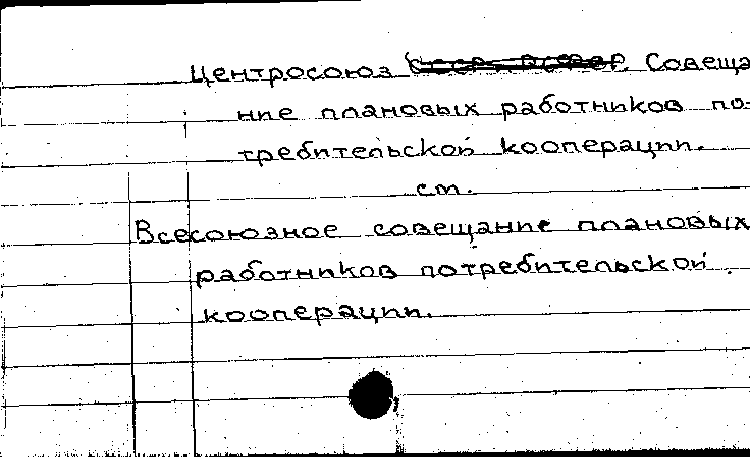 Центросоюз Совеща
ние плановых работников по-
требительской кооперации.
см.
Всесоюзное совещание плановых
работников потребительской
кооперации.